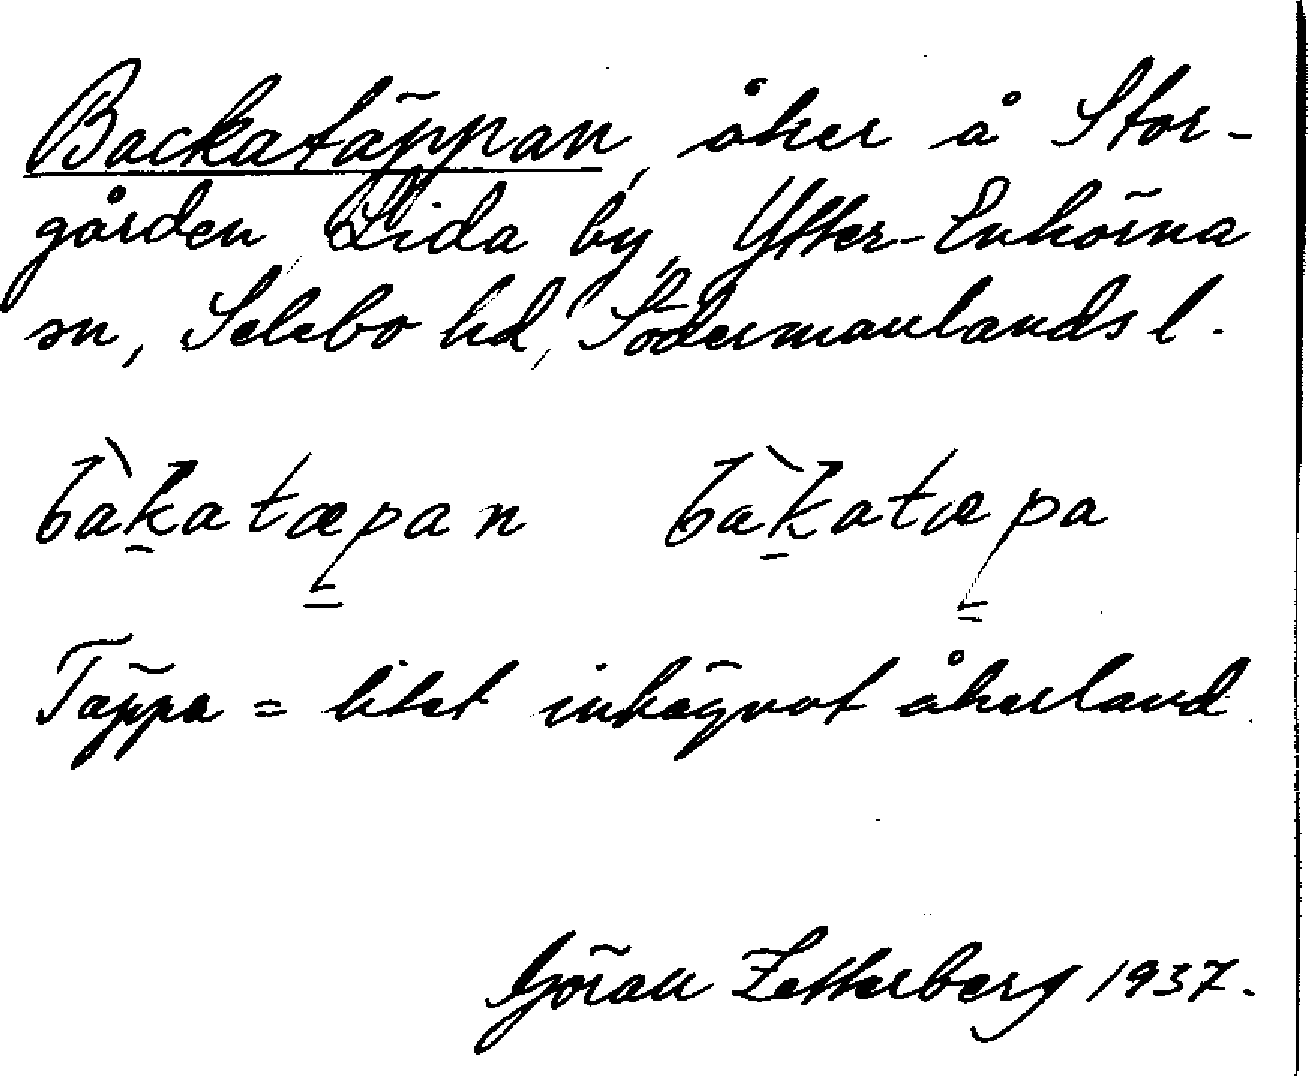 Backatäppan, åker å Stor-
gården, Lida by, Ytter-Enhörna
sn, Selebo hd, Södermanlands l.
bàkatæpan bàkatæpa
Täppa = litet inhägnat åkerland.
Göran Zetterberg 1937.